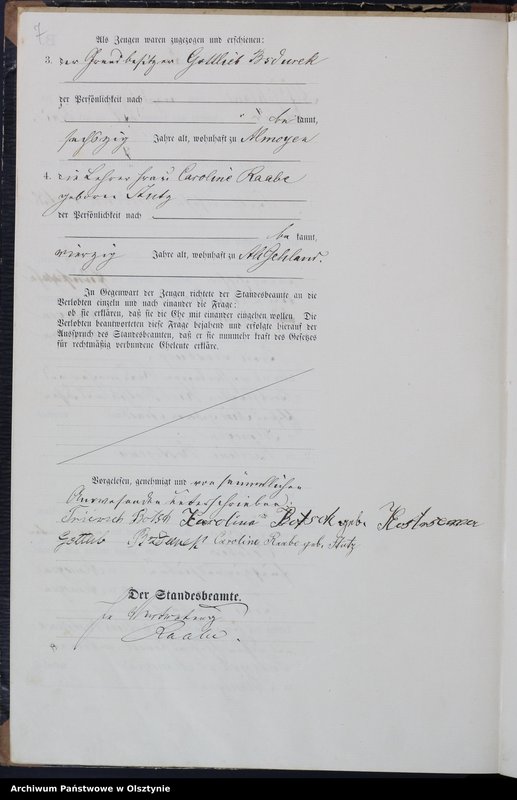 7
Als Zeugen waren zugezogen und erschienen:
3. der Grundbesitzer Gottlieb Bsdurek
der Persönlichkeit nach
be kannt,
sechszig Jahre alt, wohnhaft zu Almoyen
4. die Lehrer frau Caroline Raabe
geborne Stutz
der Persönlichkeit nach
be kannt,
vierzig Jahre alt, wohnhaft zu Alt Gehland.
In Gegenwart der Zeugen richtete der Standesbeamte an die
Verlobten einzeln und nach einander die Frage:
ob sie erklären, daß sie die Ehe mit einander eingehen wollen. Die
Verlobten beantworteten diese Frage bejahend und erfolgte hierauf der
Ausspruch des Standesbeamten, daß er sie nunmehr kraft des Gesetzes
für rechtmäßig verbundene Eheleute erkläre.
Vorgelesen, genehmigt und von sämmtlichen
Anwesenden unterschrieben:
Karolina geb.
Gottlieb Caroline Raabe geb. Stutz
Der Standesbeamte.
In Vertretung
Raabe.
Archiwum Państwowe w Olsztynie